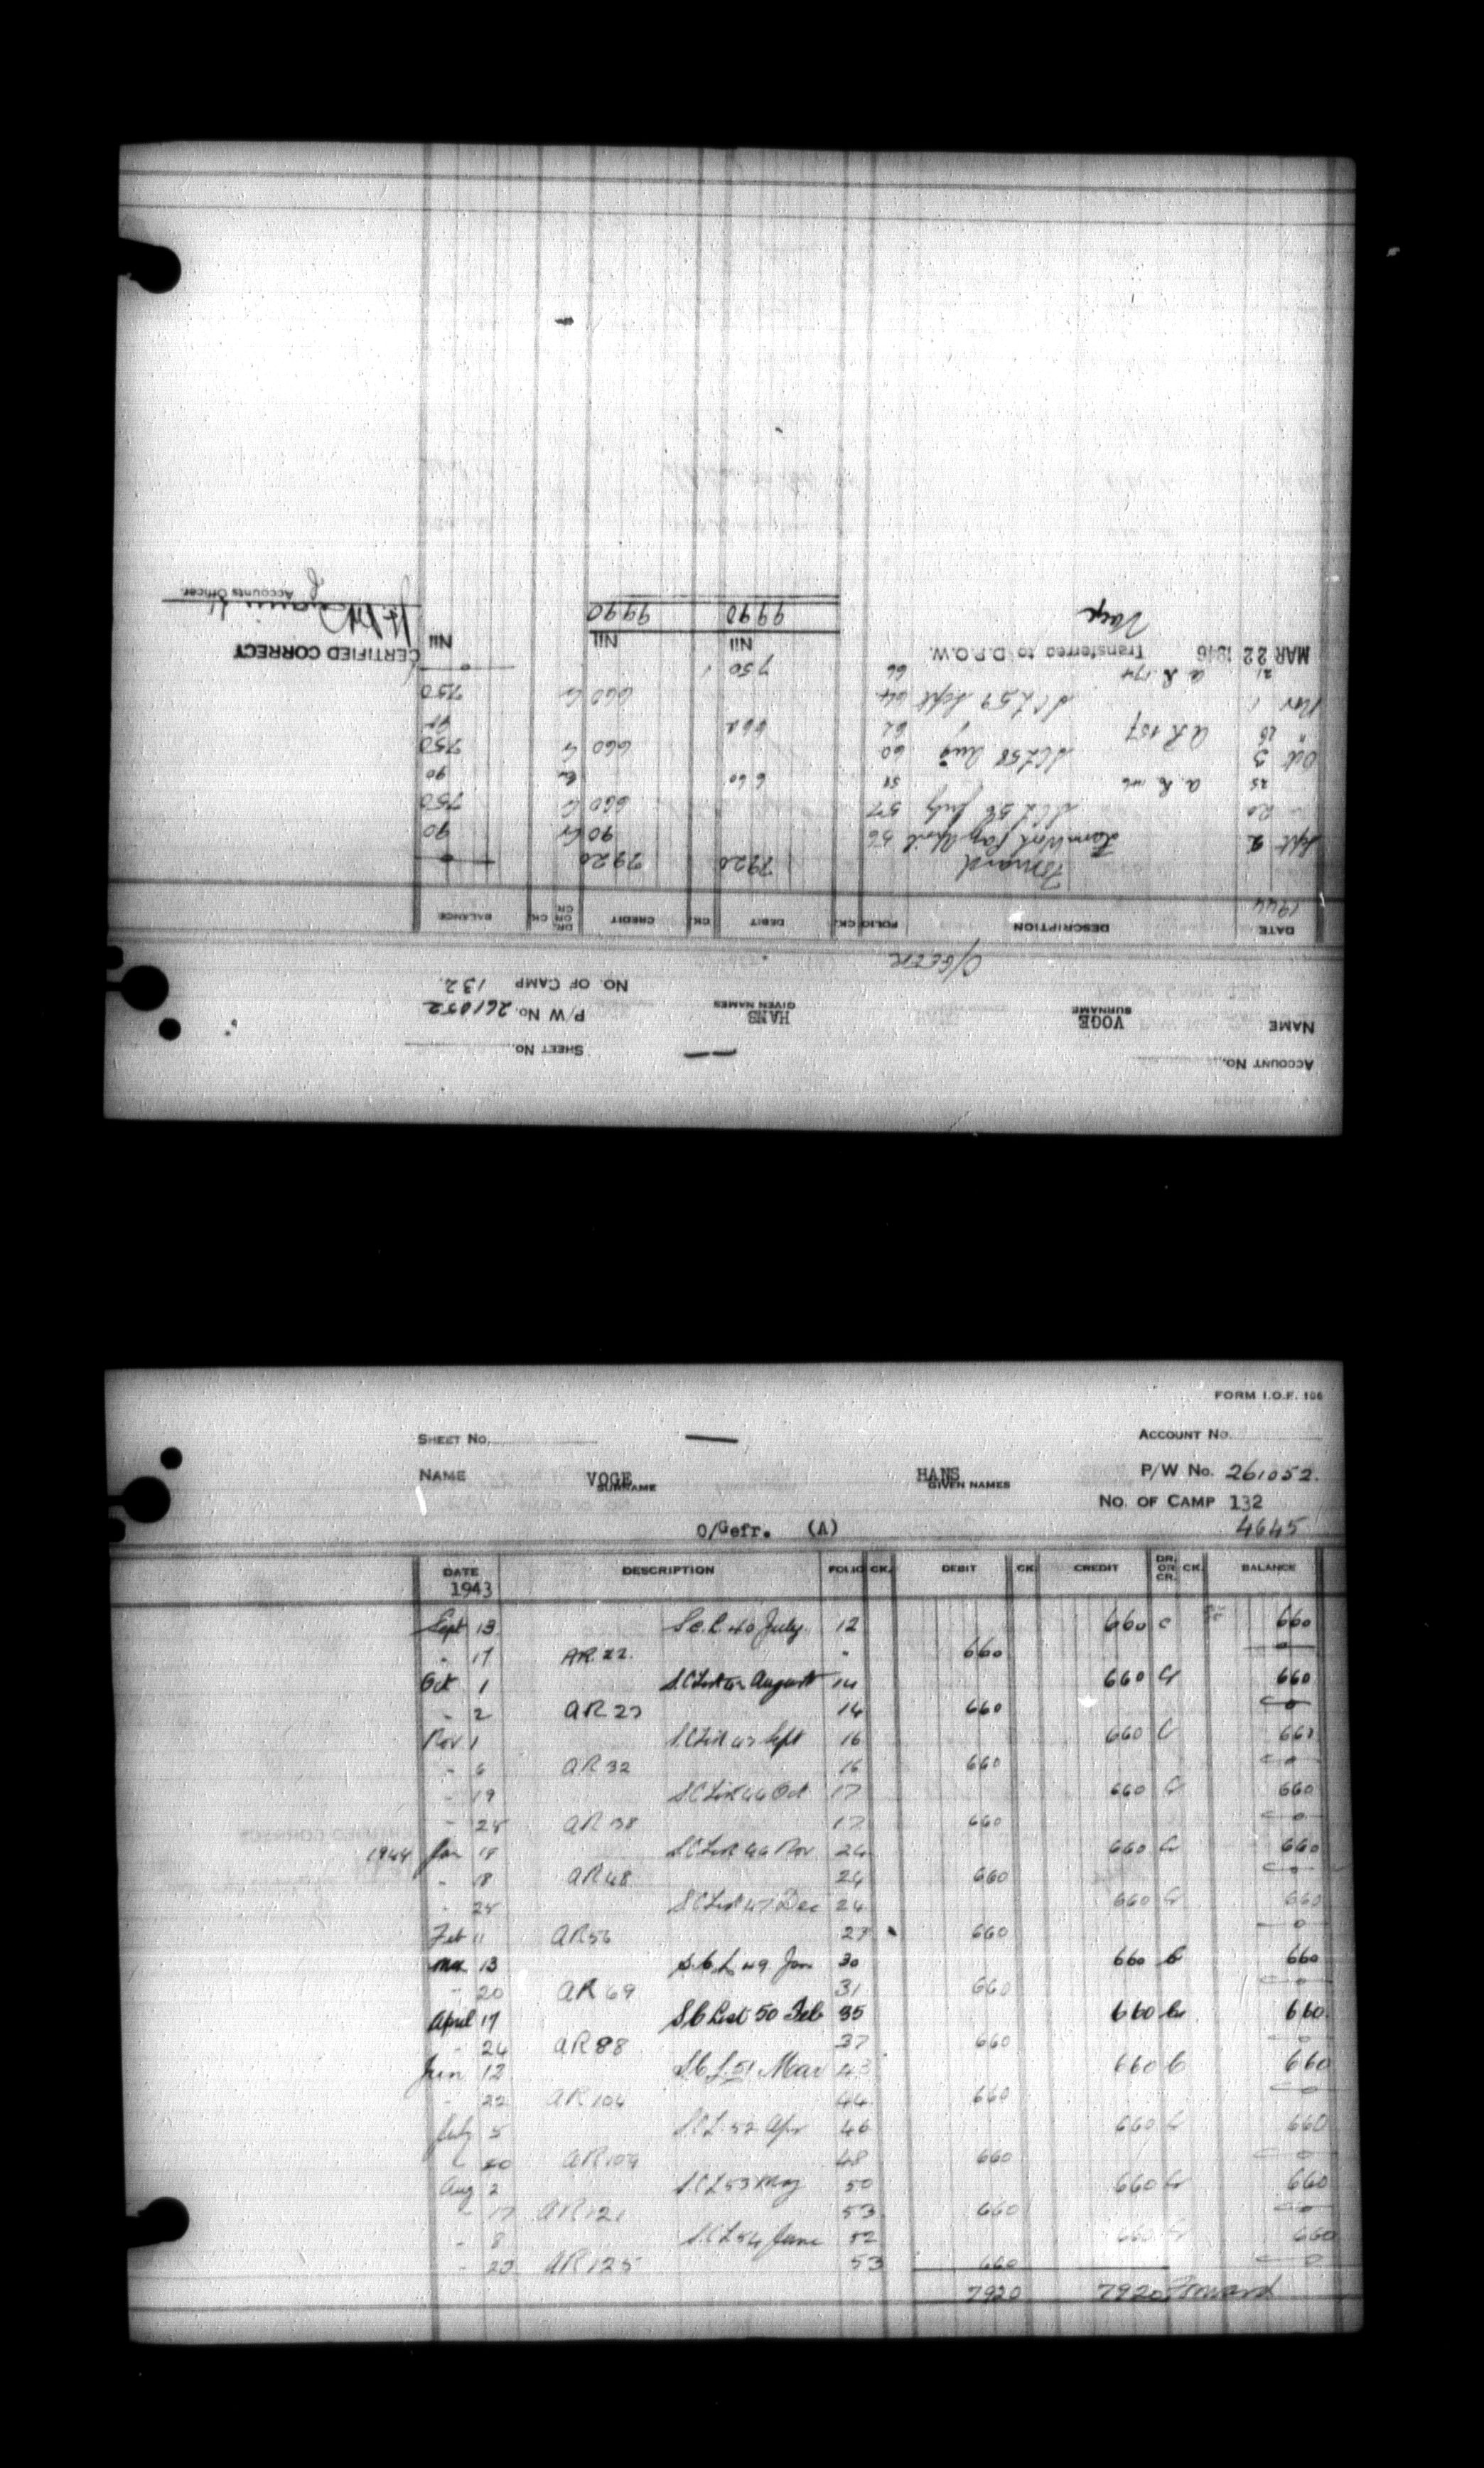 ACCOUNT No.
SHEET No.
NAME VOGE HANS P/W No. 261052
SURNAME GIVEN NAMES
NO. OF CAMP 132.
O/GEFR
DATE DESCRIPTION FOLIO CK. DEBIT CK. CREDIT DR. OR CR. CK. BALANCE
1944
Forward 7920 7920 0
Sept 2 Farm Work Pay April 56 90 Cr 90
" 20 SCL 56 July 57 660 Cr 750
25 A.R. 58 660 Cr 90
Oct 3 SCL 58 Aug 60 660 Cr 750
" 26 AR 157 62 660 90
Nov 1 SCL 59 Sept 64 660 Cr 750
21 A.R. 174 66 750 0
MAR 22 1946 Transferred to D.P.O.W. Nil Nil Nil CERTIFIED CORRECT
9990 9990
Accounts Officer.
FORM I.O.F. 106
SHEET No. ACCOUNT No.
NAME VOGE HANS P/W No. 261052.
SURNAME GIVEN NAMES
NO. OF CAMP 132
O/Gefr. (A) 4645
DATE DESCRIPTION FOLIO CK. DEBIT CK. CREDIT DR. OR CR. CK. BALANCE
1943
Sept 13 S.C.L 40 July 12 660 c 660
" 17 AR. 22. " 660 0
Oct 1 S.C List August 14 660 Cr 660
" 2 AR 27 14 660 0
Nov 1 S.C List 43 Sept 16 660 Cr 660
" 6 AR 32 16 660 0
" 19 S.C List 44 Oct 17 660 Cr 660
" 25 AR 38 17 660 0
1944 Jan 18 S.C List 46 Nov 24 660 Cr 660
" 18 AR 48 24 660 0
" 25 S.C List 47 Dec 24 660 Cr 660
Feb 11 AR 56 27 660 0
Mar 13 S.C.L. 49 Jan 30 660 Cr 660
" 20 AR 69 31 660 0
April 17 S.C List 50 Feb 35 660 Cr 660
" 24 AR 88 37 660 0
Jun 12 S.C.L. 51 Mar 43 660 Cr 660
" 22 AR 104 44 660 0
July 5 S.C.L. 52 Apr 46 660 Cr 660
" 20 AR 109 48 660 0
Aug 2 S.C.L 53 May 50 660 Cr 660
" 17 AR 121 53 660 0
" 8 S.C.L 54 June 52 660 Cr 660
" 22 AR 125 53 660 0
7920 7920 Forward